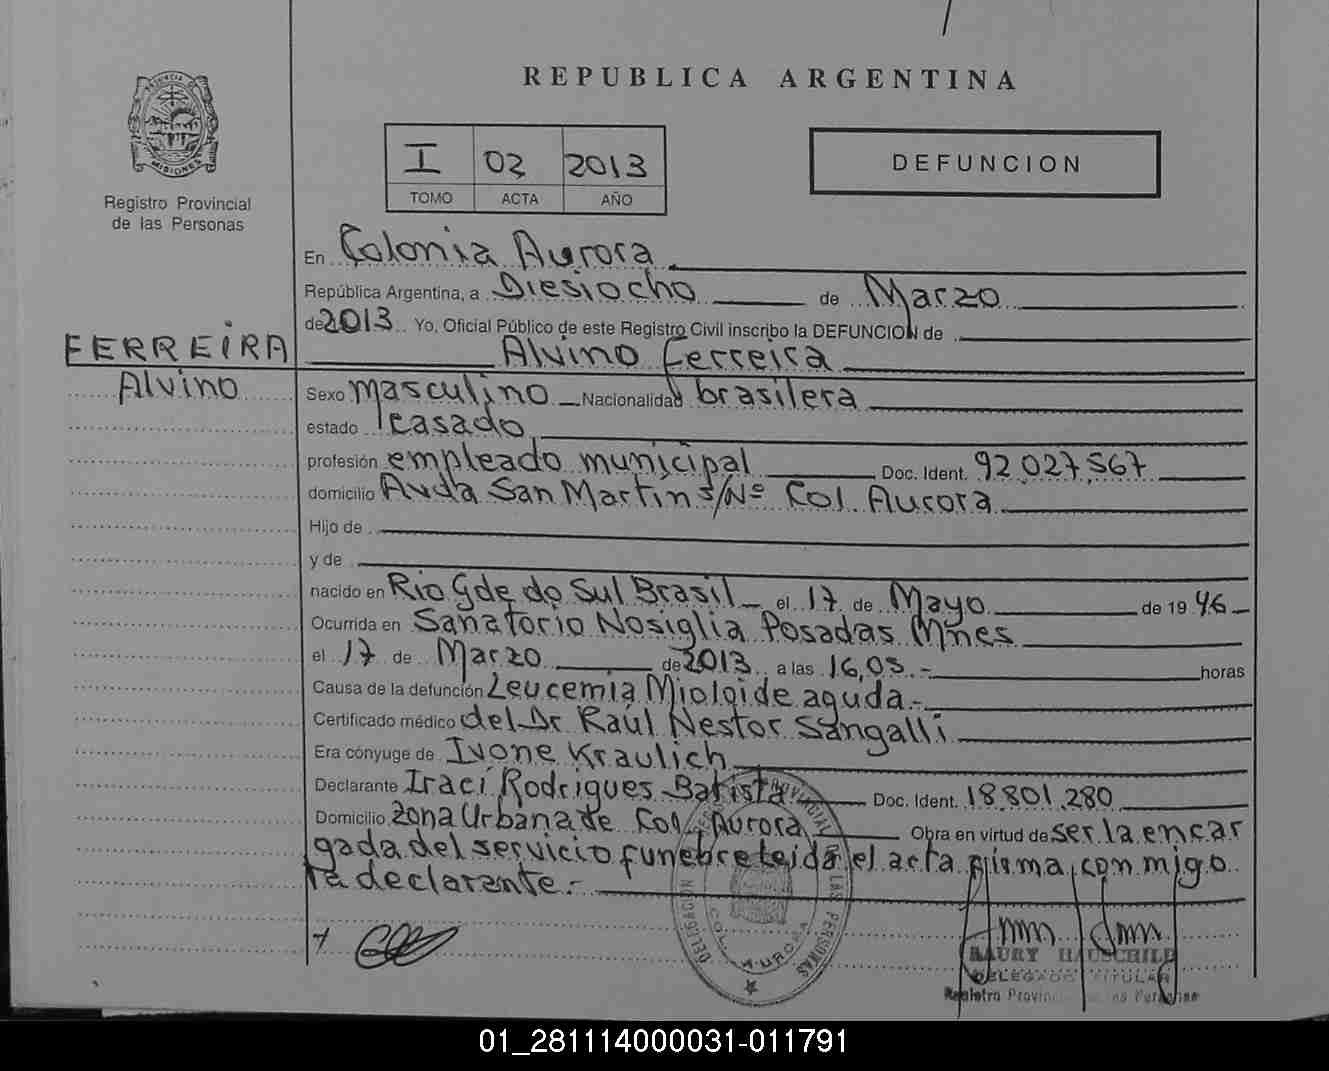 REPUBLICA ARGENTINA
MISIONES
Registro Provincial
de las Personas
I 02 2013
TOMO ACTA AÑO
DEFUNCION
En Colonia Aurora
República Argentina, a Diesiocho de Marzo
de 2013 Yo, Oficial Público de este Registro Civil inscribo la DEFUNCION de
FERREIRA
Alvino Ferreira
Alvino
Sexo masculino Nacionalidad brasilera
estado casado
profesión empleado municipal Doc. Ident. 92.027.567
domicilio Avda San Martin s/Nº Col. Aurora
Hijo de
y de
nacido en Rio Gde do Sul Brasil el 17 de Mayo de 1946
Ocurrida en Sanatorio Nosiglia Posadas Mnes
el 17 de Marzo de 2013 a las 16,05.- horas
Causa de la defunción Leucemia Mioloide aguda.-
Certificado médico del Dr Raúl Nestor Sangalli
Era cónyuge de Ivone Kraulich
Declarante Iraci Rodrigues Batista Doc. Ident. 18.801.280
Domicilio Zona Urbana de Col. Aurora Obra en virtud de ser la encar
gada del servicio funebre leida el acta firma con migo
la declarante.-
DELEGACION PROVINCIAL LAS PERSONAS
COL. AURORA
HAUSCHILD
DELEGADO TITULAR
Registro Provin
01_281114000031-011791